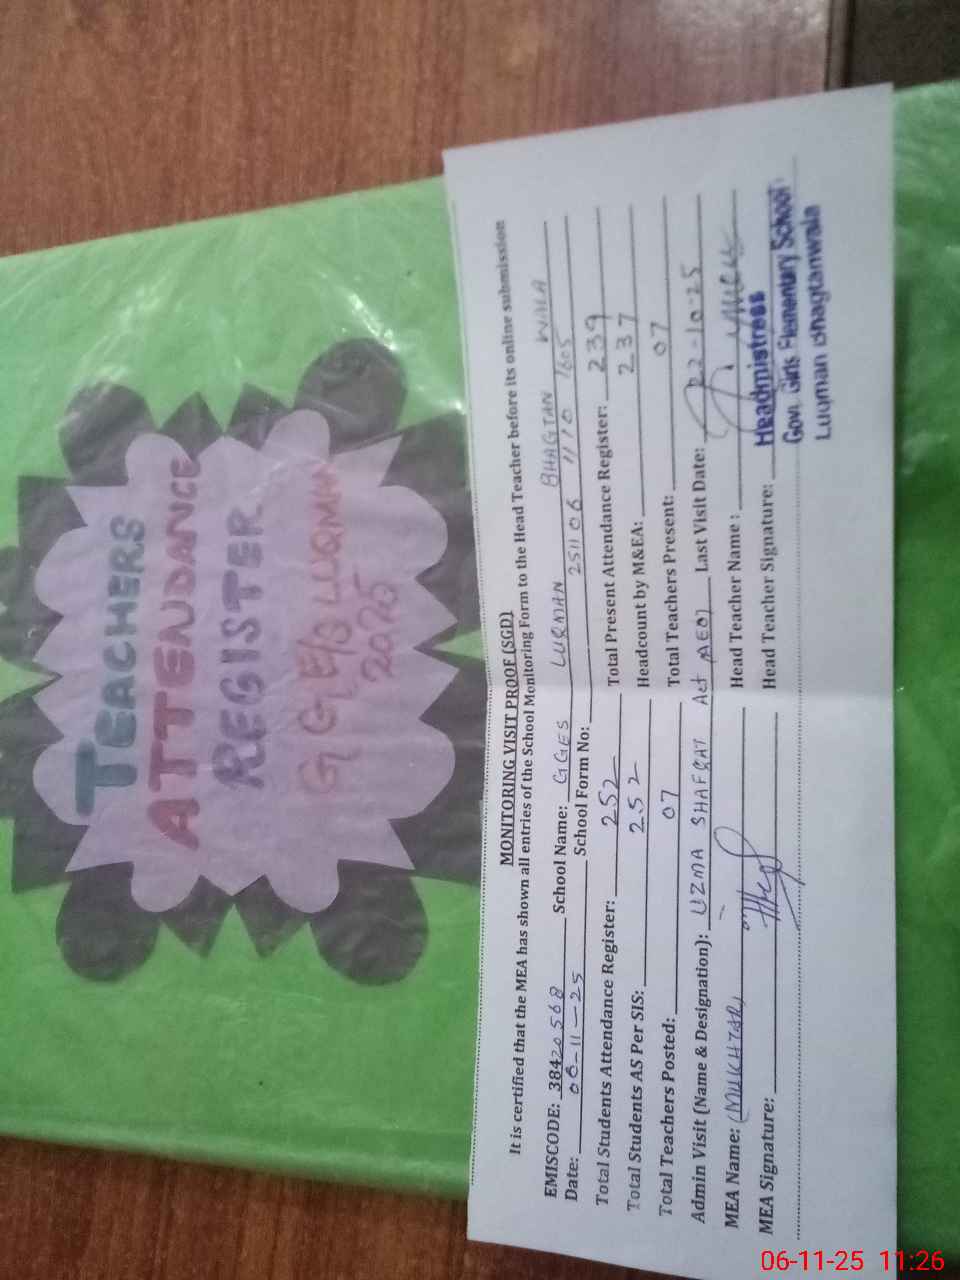 TEACHERS
ATTENDANCE
REGISTER
GGE/S LUQMAN
2025
MONITORING VISIT PROOF (SGD)
It is certified that the MEA has shown all entries of the School Monitoring Form to the Head Teacher before its online submission
EMISCODE: 38420568 School Name: GGES LUQMAN BHAGTAN WALA
Date: 06-11-25 School Form No: 251106 1110 1605
Total Students Attendance Register: 252 Total Present Attendance Register: 239
Total Students AS Per SIS: 252 Headcount by M&EA: 237
Total Teachers Posted: 07 Total Teachers Present: 07
Admin Visit (Name & Designation): UZMA SHAFQAT Act AEO) Last Visit Date: 22-10-25
MEA Name: MUKHTAR Head Teacher Name :
MEA Signature: Head Teacher Signature:
Headmistress
Govt. Girls Elementary School
Luqman Bhagtanwala
06-11-25 11:26